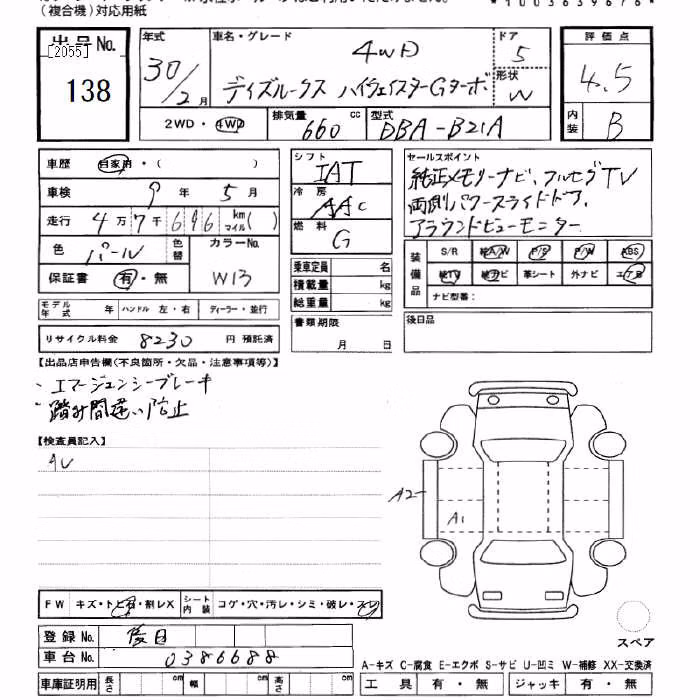 (複合機)対応用紙
*1003639676*
出品No.
[2055]
138
年式
30/2月
車名・グレード
4WD
デイズルークス ハイウェイスターGターボ
ドア
5
形状
W
評価点
4.5
内装
B
2WD・4WD
排気量
660 cc
型式
DBA-B21A
車歴 自家用・( )
車検 9年 5月
走行 4万7千696 km マイル( )
色 パール 色替
カラーNo.
W13
保証書 有・無
モデル年式 年 ハンドル 左・右 ディーラー・並行
リサイクル料金 8230 円 預託済
シフト
IAT
冷房
AAC
燃料
G
乗車定員 名
積載量 kg
総重量 kg
書類期限
月 日
セールスポイント
純正メモリーナビ、フルセグTV
両側パワースライドドア、
アラウンドビューモニター
装備品
S/R 純A/W P/S P/W ABS
純TV 純ナビ 革シート 外ナビ エアB
ナビ型番:
後日品
【出品店申告欄(不良箇所・欠品・注意事項等)】
・エマージェンシーブレーキ
・踏み間違い防止
【検査員記入】
A2
A1
FW キズ・トビ石・割レX
シート内装 コゲ・穴・汚レ・シミ・破レ・スレ
登録No. 後日
車台No. 0386688
車庫証明用 長さ cm 幅 cm 高さ cm
スペア
A-キズ C-腐食 E-エクボ S-サビ U-凹ミ W-補修 XX-交換済
工具 有・無 ジャッキ 有・無